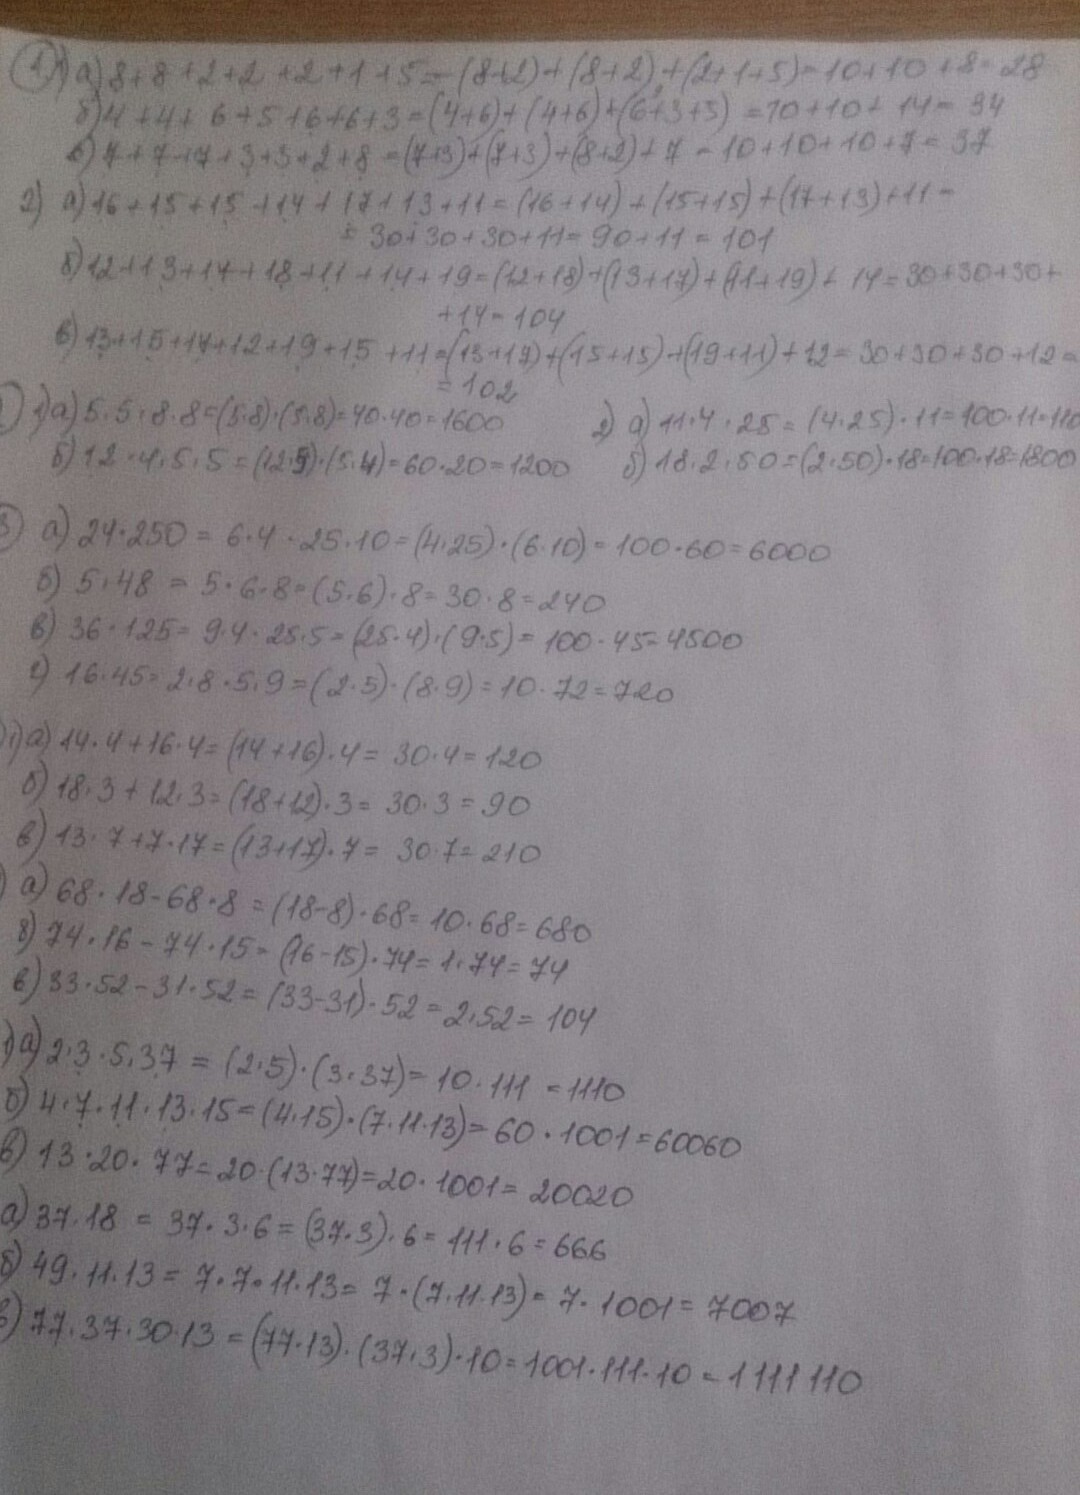 1) 1) а) 8+8+2+2+2+1+5=(8+2)+(8+2)+(2+1+5)=10+10+8=28
б) 4+4+6+5+6+6+3=(4+6)+(4+6)+(6+3+5)=10+10+14=34
в) 7+7+7+3+3+2+8=(7+3)+(7+3)+(8+2)+7=10+10+10+7=37
2) а) 16+15+15+14+17+13+11=(16+14)+(15+15)+(17+13)+11=
=30+30+30+11=90+11=101
б) 12+13+17+18+11+14+19=(12+18)+(13+17)+(11+19)+14=30+30+30+
+14=104
в) 13+15+17+12+19+15+11=(13+17)+(15+15)+(19+11)+12=30+30+30+12=
=102
1) а) 5·5·8·8=(5·8)·(5·8)=40·40=1600
2) а) 11·4·25=(4·25)·11=100·11=110
б) 12·4·5·5=(12·5)·(5·4)=60·20=1200
б) 18·2·50=(2·50)·18=100·18=1800
3) а) 24·250=6·4·25·10=(4·25)·(6·10)=100·60=6000
б) 5·48=5·6·8=(5·6)·8=30·8=240
в) 36·125=9·4·25·5=(25·4)·(9·5)=100·45=4500
г) 16·45=2·8·5·9=(2·5)·(8·9)=10·72=720
1) а) 14·4+16·4=(14+16)·4=30·4=120
б) 18·3+12·3=(18+12)·3=30·3=90
в) 13·7+7·17=(13+17)·7=30·7=210
) а) 68·18-68·8=(18-8)·68=10·68=680
б) 74·16-74·15=(16-15)·74=1·74=74
в) 33·52-31·52=(33-31)·52=2·52=104
1) а) 2·3·5·37=(2·5)·(3·37)=10·111=1110
б) 4·7·11·13·15=(4·15)·(7·11·13)=60·1001=60060
в) 13·20·77=20·(13·77)=20·1001=20020
а) 37·18=37·3·6=(37·3)·6=111·6=666
б) 49·11·13=7·7·11·13=7·(7·11·13)=7·1001=7007
в) 77·37·30·13=(77·13)·(37·3)·10=1001·111·10=1111110